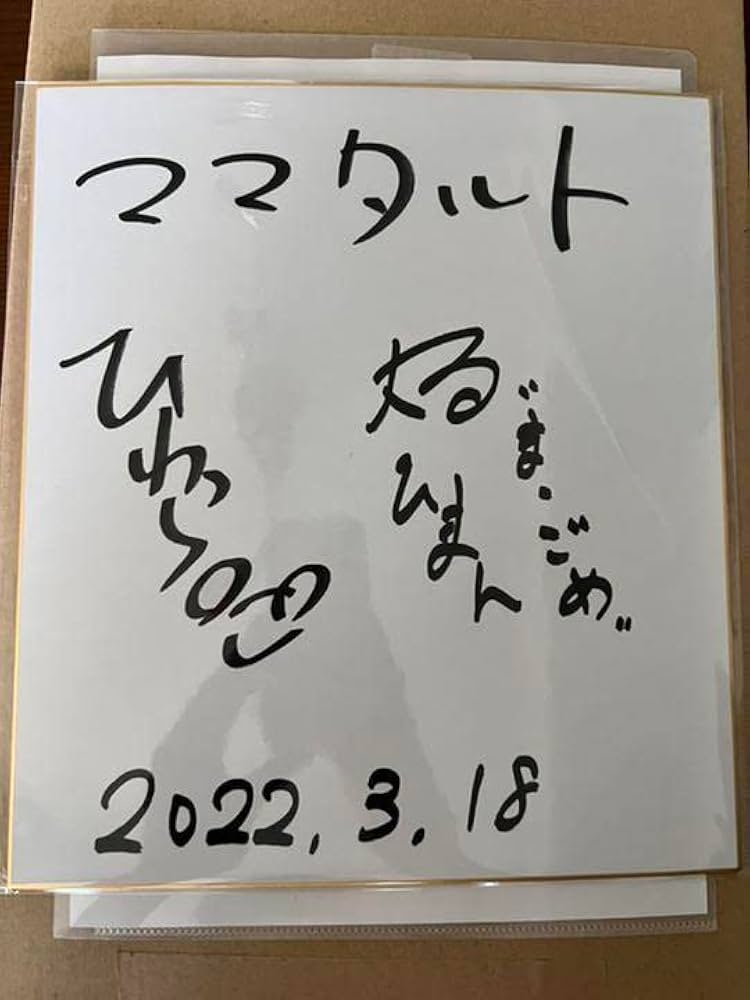 ママタルト
"ま・ごめ"
大る
ひまん
ひわら
2022.3.18